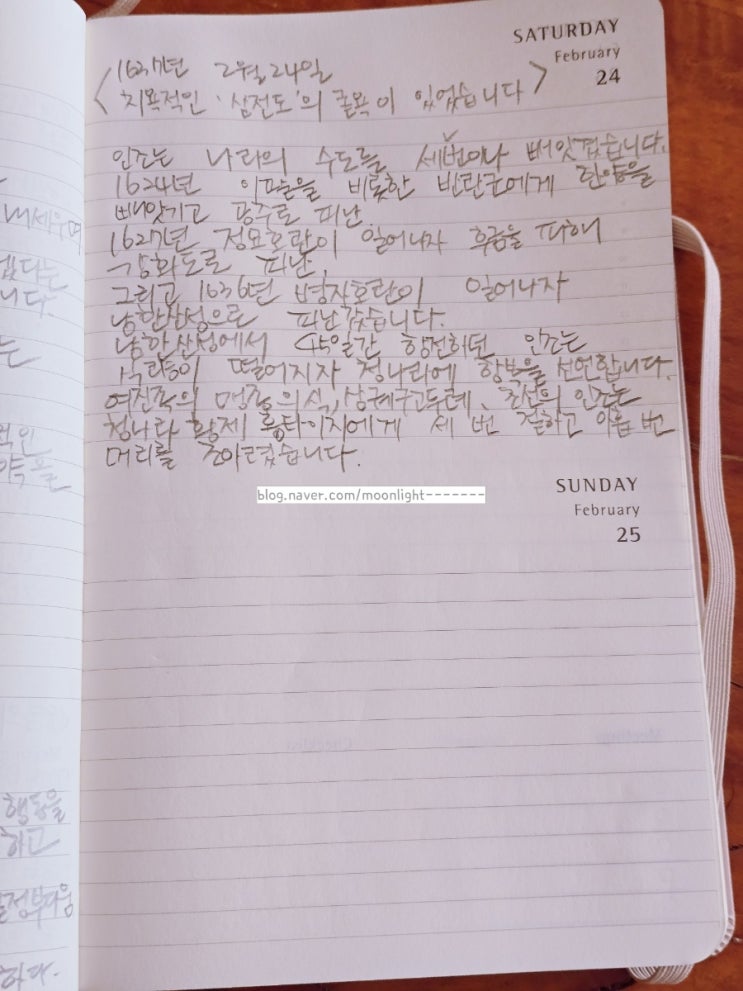 SATURDAY
February
24
1637년 2월 24일
<치욕적인 '삼전도'의 굴욕이 있었습니다>
인조는 나라의 수도를 세번이나 빼앗겼습니다.
1624년 이괄을 비롯한 반란군에게 한양을
빼앗기고 공주로 피난.
1627년 정묘호란이 일어나자 후금을 피해
강화도로 피난,
그리고 1636년 병자호란이 일어나자
남한산성으로 피난갔습니다.
남한산성에서 45일간 항전하던 인조는
식량이 떨어지자 청나라에 항복을 선언합니다.
여진족의 의식, 삼궤구고두례, 조선의 인조는
청나라 황제 홍타이지에게 세 번 절하고 아홉 번
머리를 조아렸습니다.
blog.naver.com/moonlight-------
SUNDAY
February
25
내세우며
겠다는
니다.
는
적인
약속을
행동을
하고
하다.